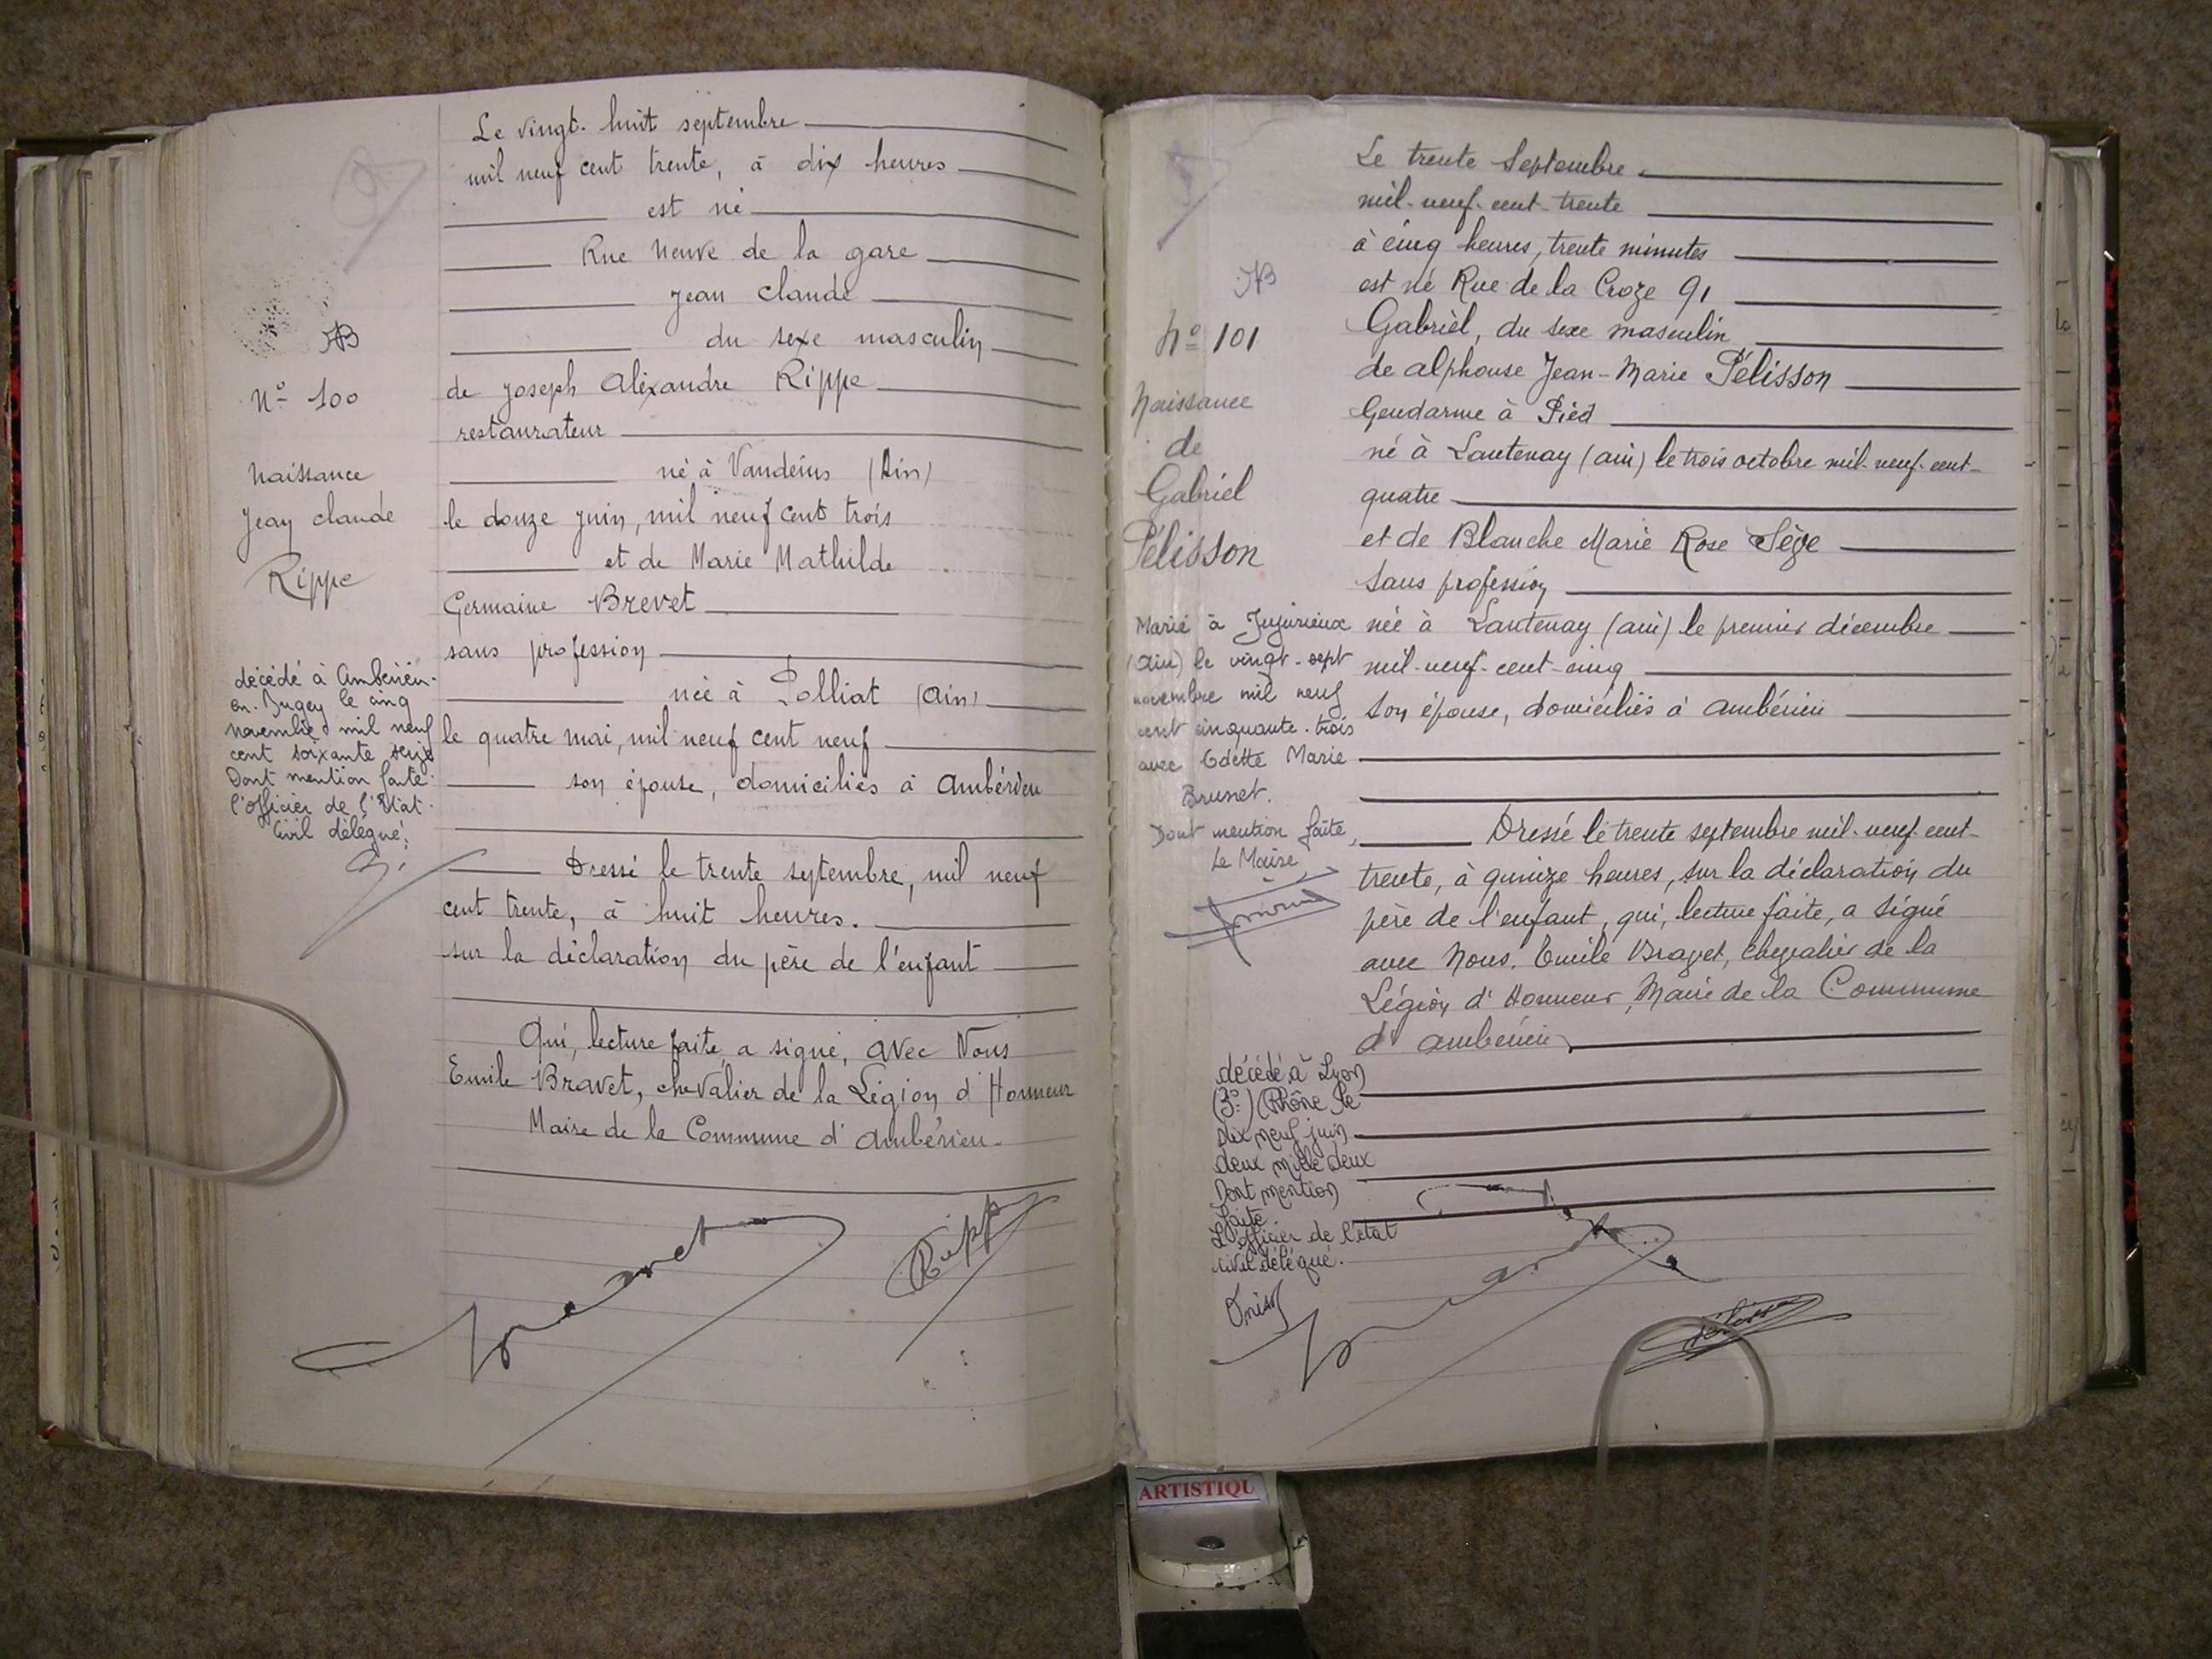 AB
N° 100
Naissance
Jean Claude
Rippe
décédé à Ambérieu-
en-Bugey le cinq
novembre mil neuf
cent soixante seize
Dont mention faite
l'officier de l'Etat
Civil délégué;
Le vingt-huit septembre
mil neuf cent trente, à dix heures
est né
Rue Neuve de la gare
Jean Claude
du sexe masculin
de Joseph Alexandre Rippe
restaurateur
né à Vandeins (Ain)
le douze juin, mil neuf cent trois
et de Marie Mathilde
Germaine Brevet
sans profession
née à Polliat (Ain)
le quatre mai, mil neuf cent neuf
son épouse, domiciliés à Ambérieu
Dressé le trente septembre, mil neuf
cent trente, à huit heures.
sur la déclaration du père de l'enfant
Qui, lecture faite, a signé, avec Nous
Emile Bravet, chevalier de la Légion d'Honneur
Maire de la Commune d'Ambérieu.
Bravet
Rippe
AB
N° 101
Naissance
de
Gabriel
Pélisson
Marié à Jujurieux
(Ain) le vingt-sept
novembre mil neuf
cent cinquante-trois
avec Odette Marie
Brunet.
Dont mention faite,
Le Maire,
décédé à Lyon
(3e) (Rhône) le
dix neuf juin
deux mille deux
Dont mention
faite
L'officier de l'état
civil délégué.
Le trente Septembre
mil-neuf-cent-trente
à cinq heures, trente minutes
est né Rue de la Croze 91
Gabriel, du sexe masculin
de Alphonse Jean-Marie Pélisson
Gendarme à Pied
né à Lantenay (ain) le trois octobre mil-neuf-cent-
quatre
et de Blanche Marie Rose Sège
sans profession
née à Lantenay (ain) le premier décembre
mil-neuf-cent-cinq
son épouse, domiciliés à Ambérieu
Dressé le trente septembre mil-neuf-cent-
trente, à quinze heures, sur la déclaration du
père de l'enfant, qui, lecture faite, a signé
avec Nous. Emile Bravet, chevalier de la
Légion d'Honneur, Maire de la Commune
d'Ambérieu
Pélisson
ARTISTIQU